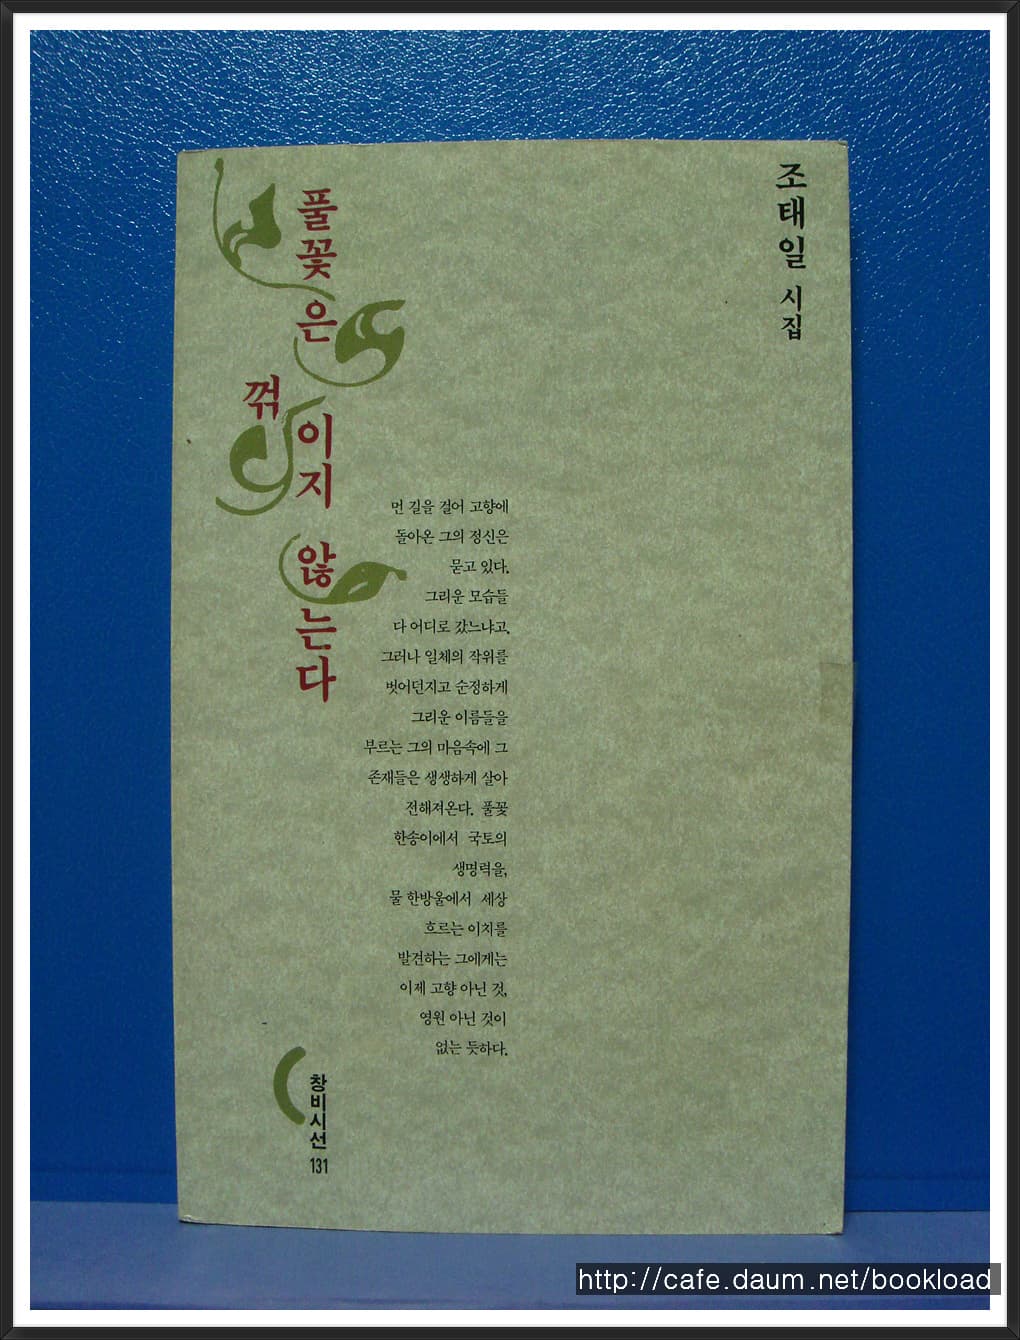 조태일 시집
풀꽃은
꺾이지 않는다
먼 길을 걸어 고향에
돌아온 그의 정신은
묻고 있다.
그리운 모습들
다 어디로 갔느냐고.
그러나 일체의 작위를
벗어던지고 순정하게
그리운 이름들을
부르는 그의 마음속에 그
존재들은 생생하게 살아
전해져온다. 풀꽃
한송이에서 국토의
생명력을,
물 한방울에서 세상
흐르는 이치를
발견하는 그에게는
이제 고향 아닌 것,
영원 아닌 것이
없는 듯하다.
창비시선
131
http://cafe.daum.net/bookload